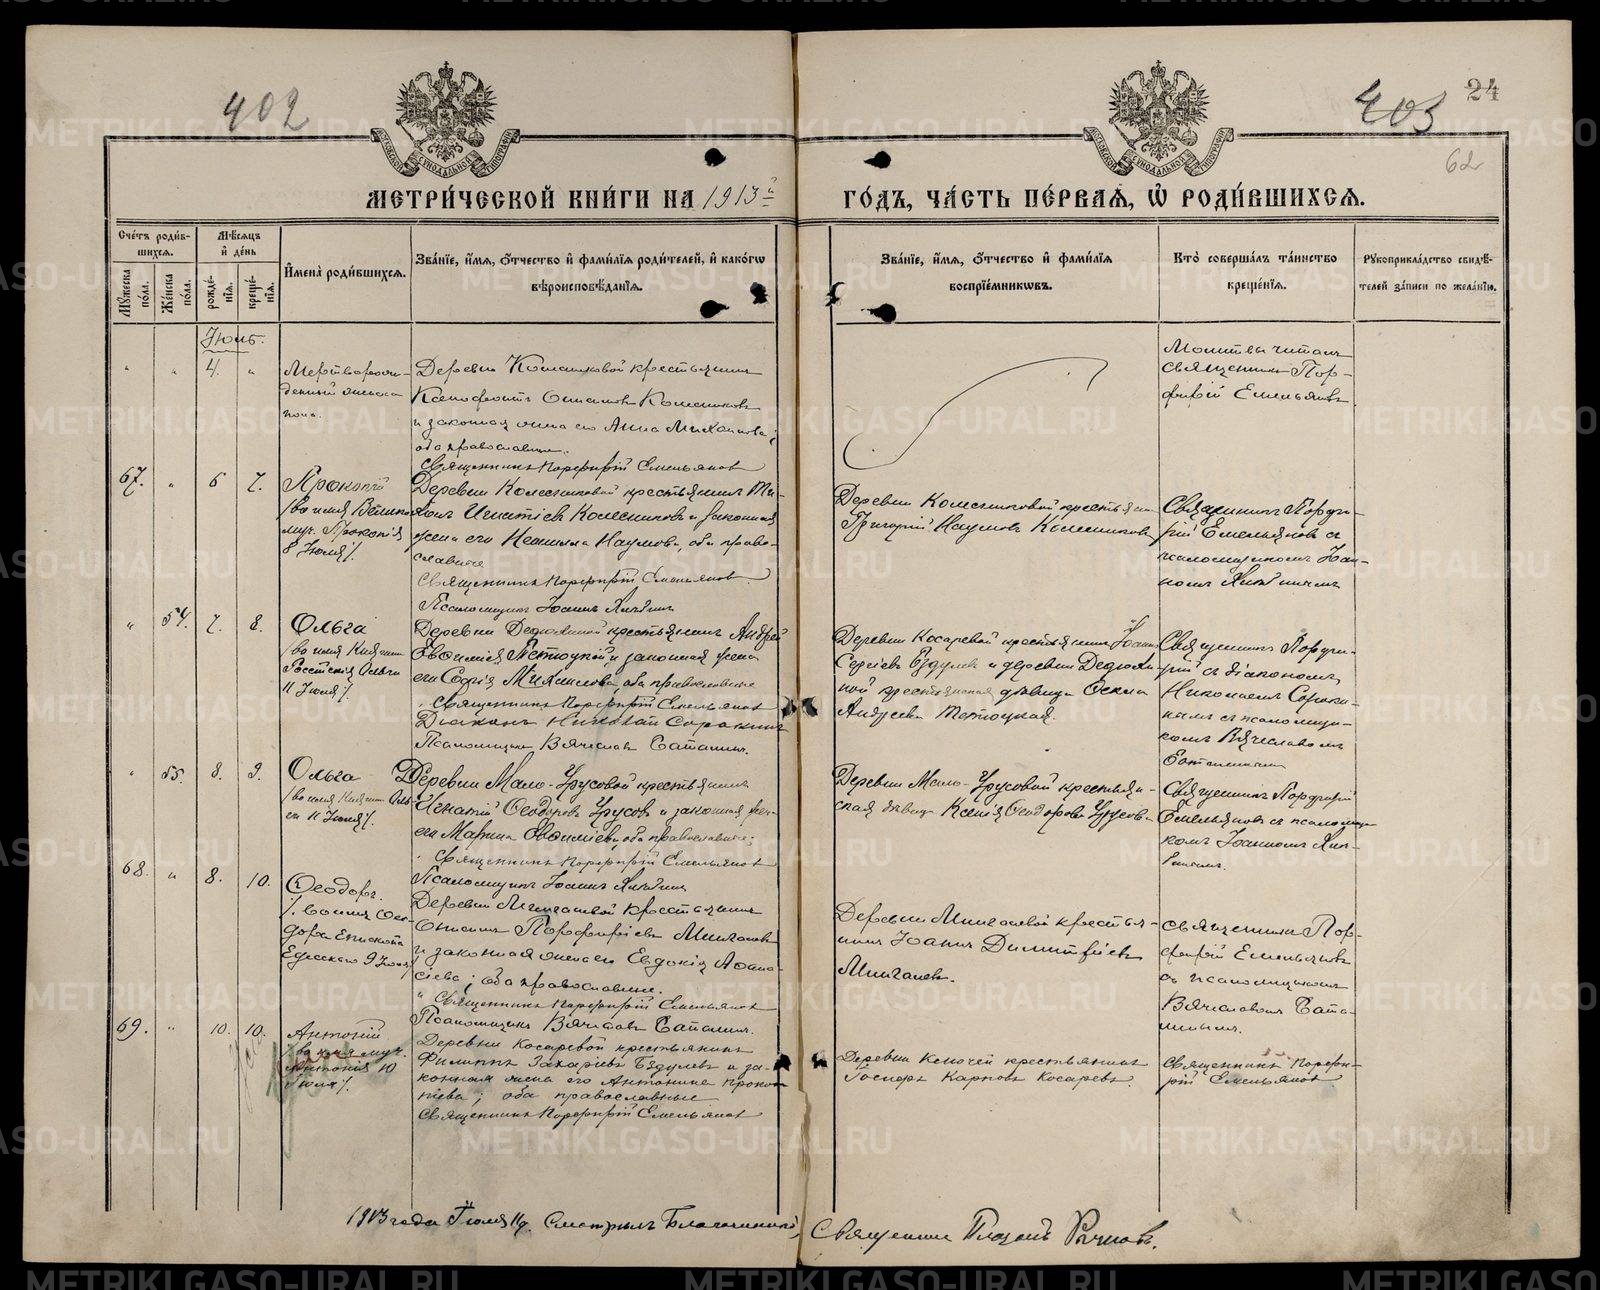 402
403
24
62
МЕТРИ́ЧЕСКОЙ КНИ́ГИ НА 1913й
ГО́ДЪ, ЧА́СТЬ ПЕ́РВАѦ, Ѡ҆ РОДИ́ВШИХСѦ.
Сче́тъ роди́в-
шихсѧ.
Мѣ́сѧцъ
и҆ де́нь
Мꙋ́жеска по́ла.
Же́нска по́ла.
рожде́-
нїѧ.
креще́-
нїѧ.
И҆мена̀ роди́вшихсѧ.
Зва́нїе, и҆́мѧ, ѻ҆́тчество и҆ фами́лїѧ роди́телей, и҆ како́гѡ
вѣроисповѣ́данїѧ.
Зва́нїе, и҆́мѧ, ѻ҆́тчество и҆ фами́лїѧ
воспрїе́мникѡвъ.
Кто̀ соверша́лъ та́инство
креще́нїѧ.
Рꙋкоприкла́дство свидѣ́-
телей за́писи по жела́нїю.
Іюль.
" " 4. "
Мертворож-
денный женска
пола.
крестьянинъ
Ксенофонтъ
и законная жена его Анна Михаилова;
оба православные.
Священникъ Порфирій Емельяновъ
Молитвы читалъ
священникъ Пор-
фирій Емельяновъ
67. " 6 7.
Прокопій
/во имя Велико
муч. Прокопія
8 Іюля/.
Деревни Колесниковой крестьянинъ Ти-
хонъ Игнатіевъ Колесниковъ и законная
жена его Неонилла Наумова, оба право-
славные
Священникъ Порфирій Емельяновъ
Псаломщикъ Іоаннъ
Деревни Колесниковой крестьянинъ
Григорій Наумовъ Колесниковъ
Священникъ Порфи-
рій Емельяновъ съ
псаломщикомъ Іоан-
номъ
" 54. 7. 8.
Ольга
/во имя Княгини
Россійскія Ольги
11 Іюля/.
Деревни Дедюхиной крестьянинъ Андрей
Евѳиміевъ и законная жена
его Софія Михаилова, оба православные
Священникъ Порфирій Емельяновъ
Діаконъ Николай Сорокинъ
Псаломщикъ Вячеславъ
Деревни Косаревой крестьянинъ Іоаннъ
Сергіевъ Бздулевъ и деревни Дедюхи-
ной крестьянская дѣвица
Андреева
Священникъ Порфи-
рій съ діакономъ
Николаемъ Сороки-
нымъ съ псаломщи-
комъ Вячеславомъ
" 55. 8. 9.
Ольга
/во имя Княгини Оль-
ги 11 Іюля/.
Деревни Мало-Урусовой крестьянинъ
Игнатій Ѳеодоровъ Урусовъ и законная жена
его Марина Евѳиміева, оба православные;
Священникъ Порфирій Емельяновъ
Псаломщикъ Іоаннъ
Деревни Мало-Урусовой крестьян-
ская дѣвица Ксенія Ѳеодорова Урусова
Священникъ Порфирій
Емельяновъ съ псаломщи-
комъ Іоанномъ
68. " 8. 10.
Ѳеодоръ.
/. во имя Ѳео-
дора Епископа
Едесскаго 9 Іюля/
Деревни Мингалевой крестьянинъ
Онисимъ Порфиріевъ Мингалевъ
и законная жена его Евдокія Аѳана-
сіева; оба православные.
Священникъ Порфирій Емельяновъ
Псаломщикъ Вячеславъ
Деревни Мингалевой крестья-
нинъ Іоаннъ Димитріевъ
Мингалевъ.
Священникъ Пор-
фирій Емельяновъ
съ псаломщикомъ
Вячеславомъ
69. " 10. 10.
Антоній
/во имя муч.
Антонія 10
Іюля/.
Деревни Косаревой крестьянинъ
Филиппъ Захаріевъ Бздулевъ и за-
конная жена его Антонина Проко-
піева; оба православные
Священникъ Порфирій Емельяновъ
Деревни Ключей крестьянинъ
Карповъ Косаревъ.
Священникъ Порфи-
рій Емельяновъ
1913 года Іюля 11 д. Смотрѣлъ Благочинный,
Священникъ